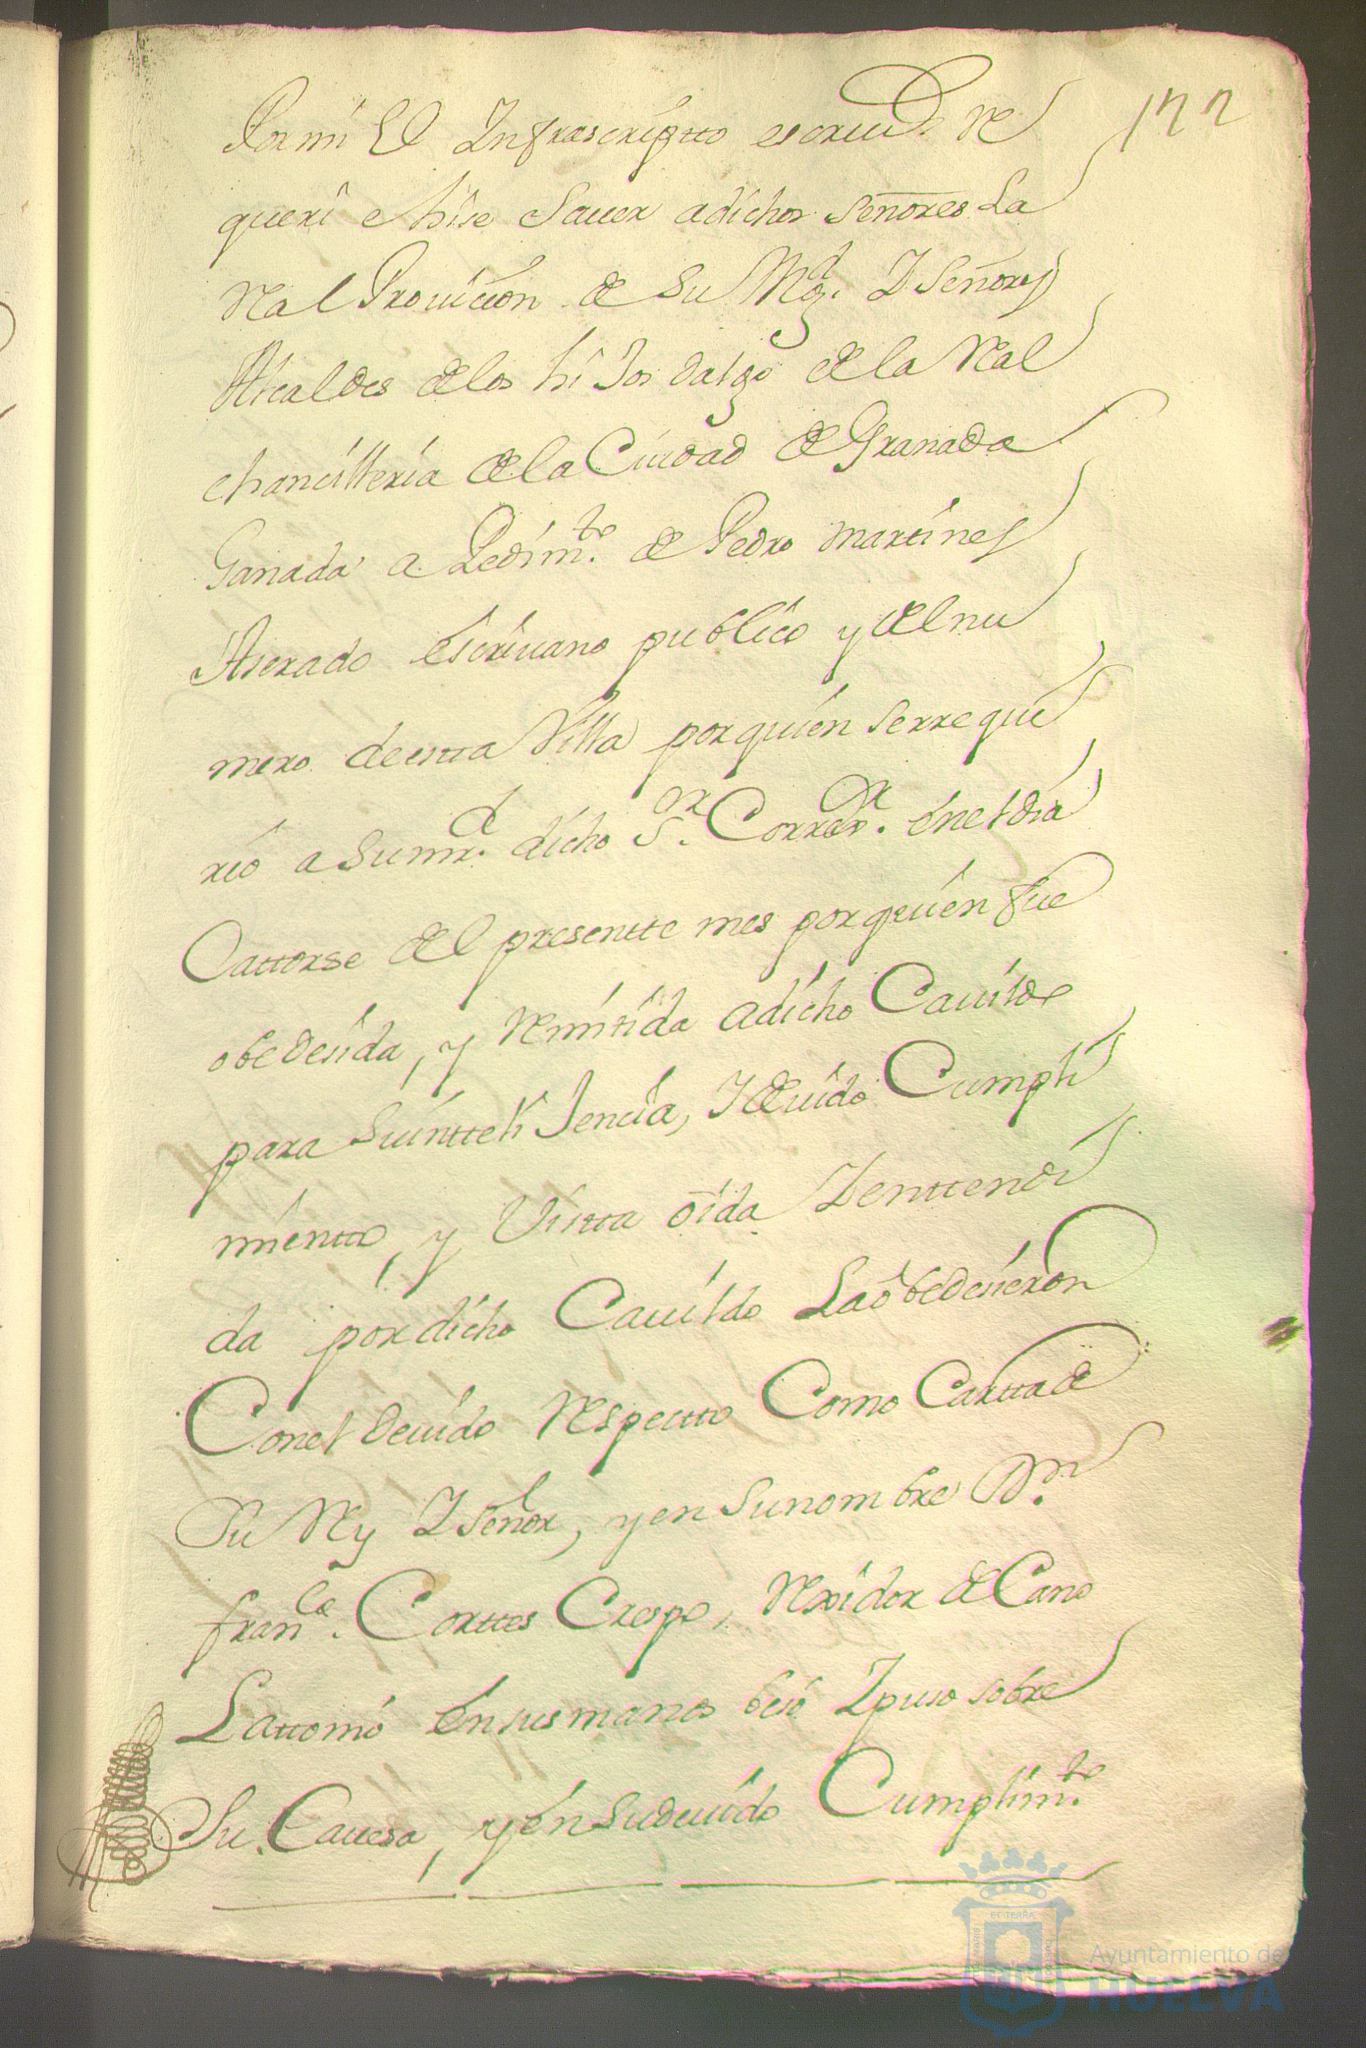 122
Por mi El Infrascriptto escriu.º Re
queri e hise Sauer a dichos Señores La
Real Prouicion de Su Mg.d I Señores
Alcaldes de los hiJos dalgo de la Real
chansilleria de la Ciudad de Granada
Ganada a Pedim.to de Pedro Martines
escriuano publico y del nu
mero de estta Villa por quien se rrequi
rio a Su mr.d dicho S.or Corre.or en el dia
Cattorse del presentte mes por quien fue
obedesida, y Remitida a dicho Cauildo
para Su intteliJencia, I deuido Cumpli
mientto, y Vistta oida I enttendi
da por dicho Cauildo La obedesieron
Con el deuido Respectto Como Cartta de
Su Rey I Señor, y en Su nombre D.n
fran.co Corttes Crespo, Rexidor de Cano
La ttomó en sus manos besó I puso sobre
Su Cauesa, y en Su deuido Cumplim.to
Ayuntamiento de
HUELVA